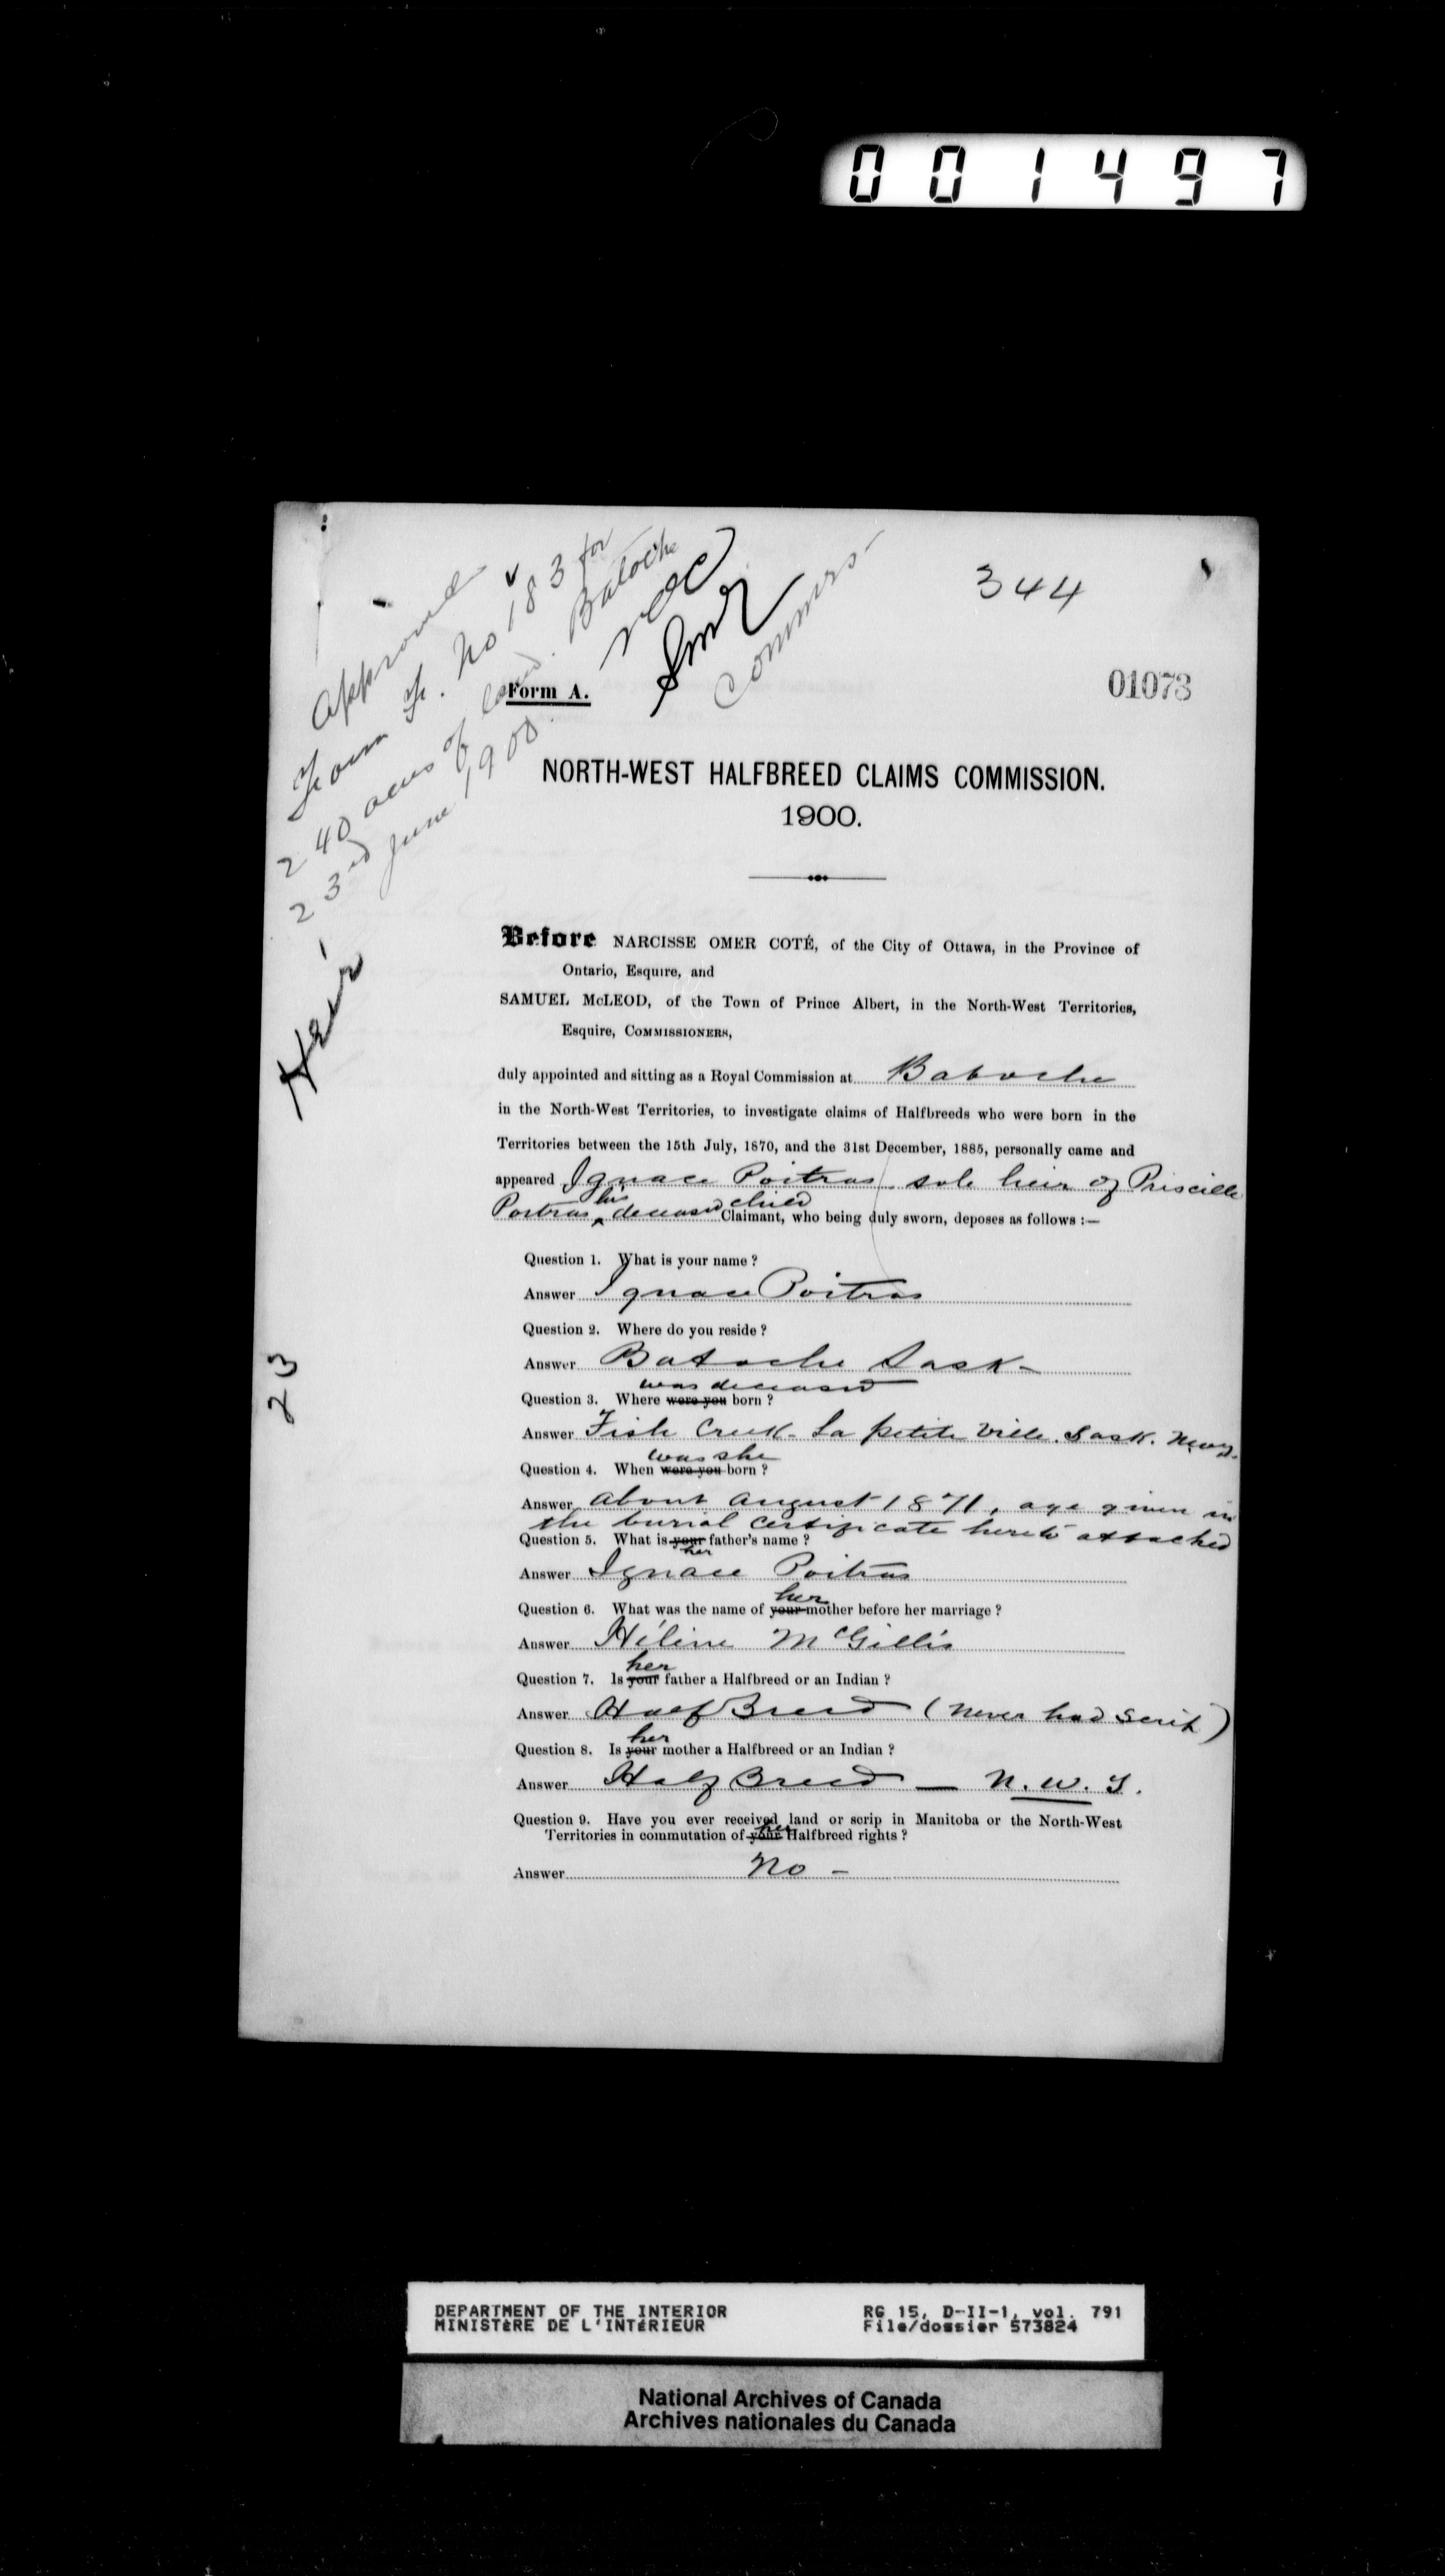 001497
344
Approved
Form F. No 183 for
240 acres of land. Batoche
23rd June 1900.
NOC
SMcL
Commrs
Form A.
01073
NORTH-WEST HALFBREED CLAIMS COMMISSION.
1900.
Heir
Before NARCISSE OMER COTÉ, of the City of Ottawa, in the Province of
Ontario, Esquire, and
SAMUEL McLEOD, of the Town of Prince Albert, in the North-West Territories,
Esquire, COMMISSIONERS,
duly appointed and sitting as a Royal Commission at Batoche
in the North-West Territories, to investigate claims of Halfbreeds who were born in the
Territories between the 15th July, 1870, and the 31st December, 1885, personally came and
appeared Ignace Poitras sole heir of Priscille
Poitras his deceased child Claimant, who being duly sworn, deposes as follows :—
Question 1. What is your name ?
Answer Ignace Poitras
Question 2. Where do you reside ?
23
Answer Batoche Sask-
was deceased
Question 3. Where were you born ?
Answer Fish Creek - La petite Ville. Sask. N.W.T.
was she
Question 4. When were you born ?
Answer About August 1871, age given in
the burial certificate hereto attached
Question 5. What is your father's name ?
her
Answer Ignace Poitras
her
Question 6. What was the name of your mother before her marriage ?
Answer Hélène McGillis
her
Question 7. Is your father a Halfbreed or an Indian ?
Answer Half Breed (never had scrip)
her
Question 8. Is your mother a Halfbreed or an Indian ?
Answer Half Breed — N.W.T.
Question 9. Have you ever received land or scrip in Manitoba or the North-West
Territories in commutation of your her Halfbreed rights ?
Answer No -
DEPARTMENT OF THE INTERIOR RG 15, D-II-1, vol. 791
MINISTèRE DE L'INTéRIEUR File/dossier 573824
National Archives of Canada
Archives nationales du Canada